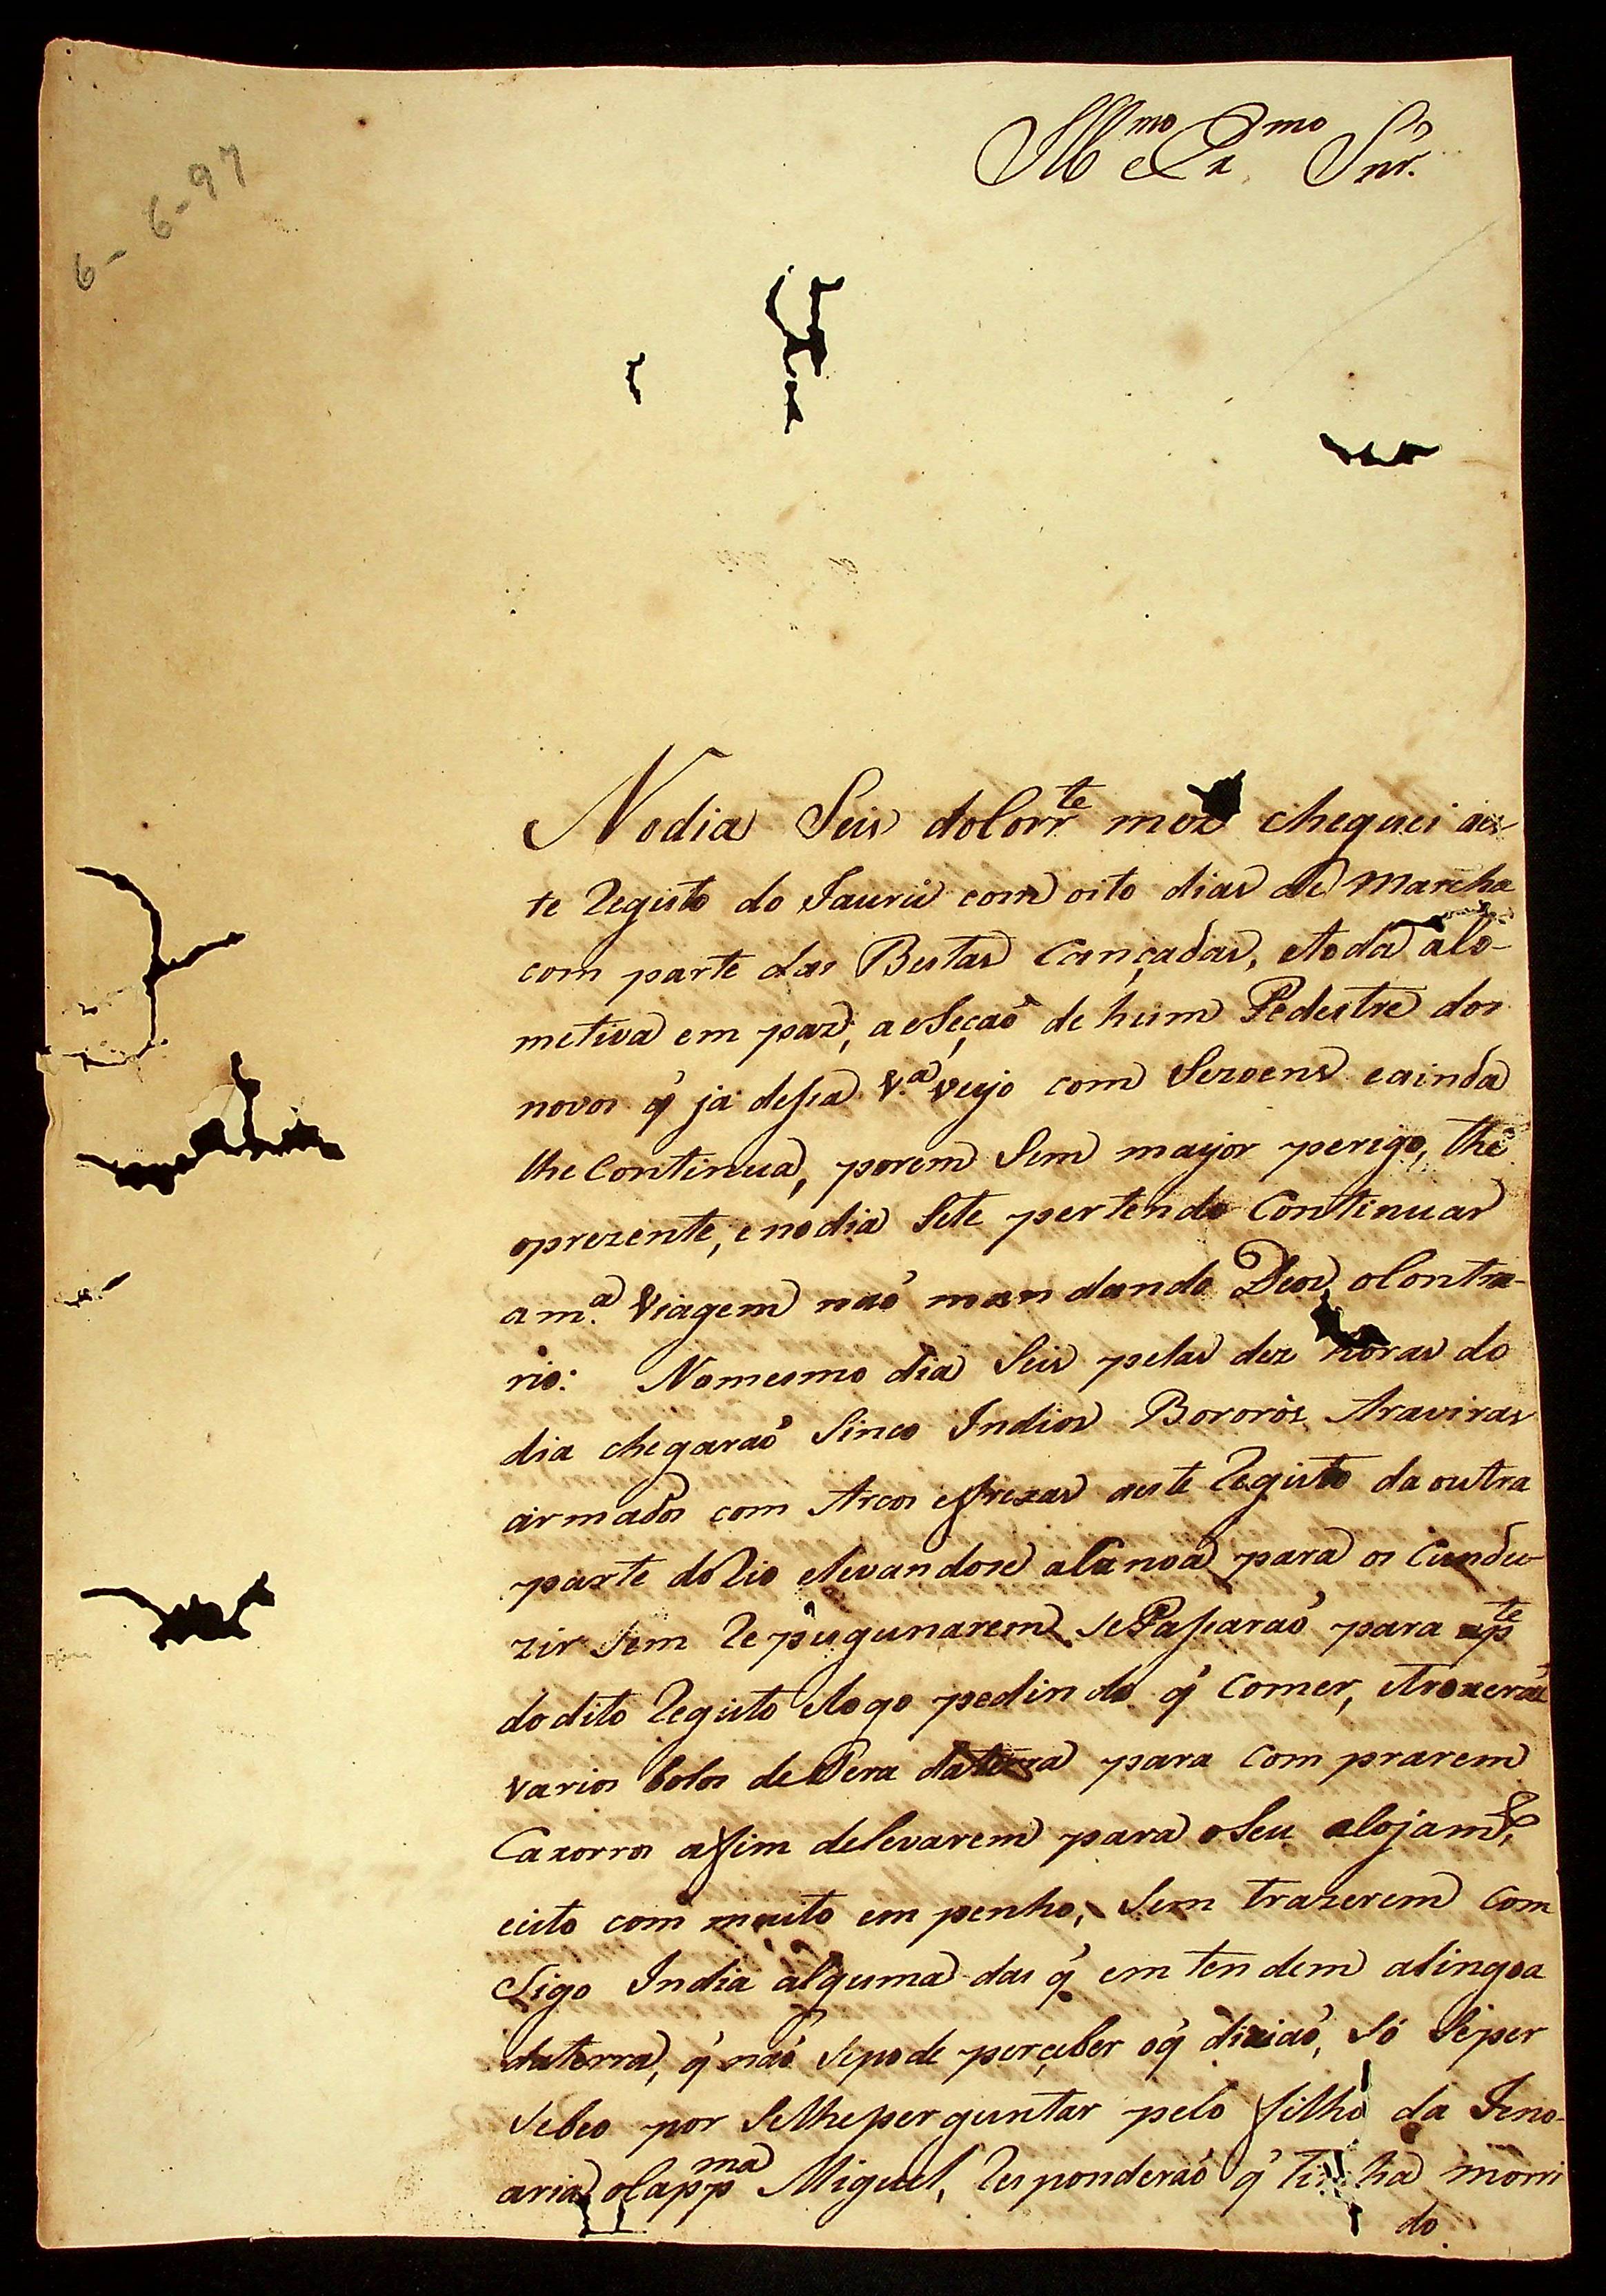 6-6-97
Ill.mo e Ex.mo Snr.
No dia Seis do Corr.te mez cheguei aes-
te Registo do Jaurú com oito dias de marcha
com parte das Bestas Cançadas, etoda aCo-
metiva em paz, a eseçaõ de hum Pedestre dos
novos q̃ já dessa V.a veyo com Sezoens eainda
lhe Continua, porem Sem mayor perigo, thé
oprezente, enodia Sete pertendo Continuar
am.a Viagem naõ mandando Deos oContra-
rio: Nomesmo dia Seis pelas dez horas do
dia chegaraõ Sinco Indios Bororós Araviras
armados com Arcos efrexas aeste Registo da outra
parte doRio elevandose aCanoa para os Cundu-
zir Sem Repugunarem sePassaraõ para ap.te
dodito Registo elogo pedindo q̃ Comer, etroxeraõ
varios bolos deSera daterra para Comprarem
Caxorros afim delevarem para oSeu alojam.to,
eisto com muito empenho, Sem trazerem Com
Sigo India alguma das q̃ emtendem alingoa
daterra, q̃ naõ Sepode perçeber oq̃ diziaõ, Só Seper
Sebeo por Selheperguntar pelo filho da Jeno-
aria oCapp.ma Miguel, Responderaõ q̃ tinha morri
do